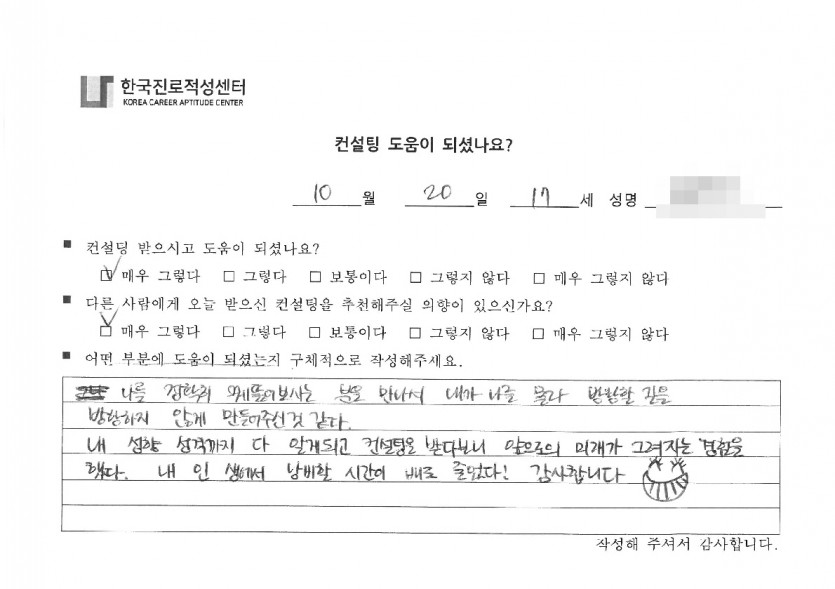 한국진로적성센터
KOREA CAREER APTITUDE CENTER
컨설팅 도움이 되셨나요?
10 월 20 일 17 세 성명
■ 컨설팅 받으시고 도움이 되셨나요?
☑ 매우 그렇다 □ 그렇다 □ 보통이다 □ 그렇지 않다 □ 매우 그렇지 않다
■ 다른 사람에게 오늘 받으신 컨설팅을 추천해주실 의향이 있으신가요?
☑ 매우 그렇다 □ 그렇다 □ 보통이다 □ 그렇지 않다 □ 매우 그렇지 않다
■ 어떤 부분에 도움이 되셨는지 구체적으로 작성해주세요.
나를 정확히 꿰뚫어보시는 분을 만나서 내가 나를 몰라 방황할 길을
방황하지 않게 만들어주신 것 같다.
내 성향 성격까지 다 알게되고 컨설팅을 받다보니 앞으로의 미래가 그려지는 경험을
했다. 내 인생에서 낭비할 시간이 배로 줄었다! 감사합니다
작성해 주셔서 감사합니다.